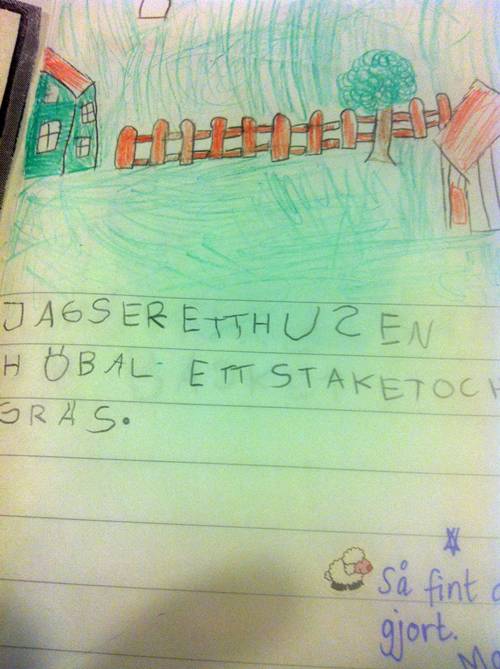 JAGSER ETTHUS EN
HÖBAL ETT STAKETOCH
GRÄS.
Så fint
gjort.